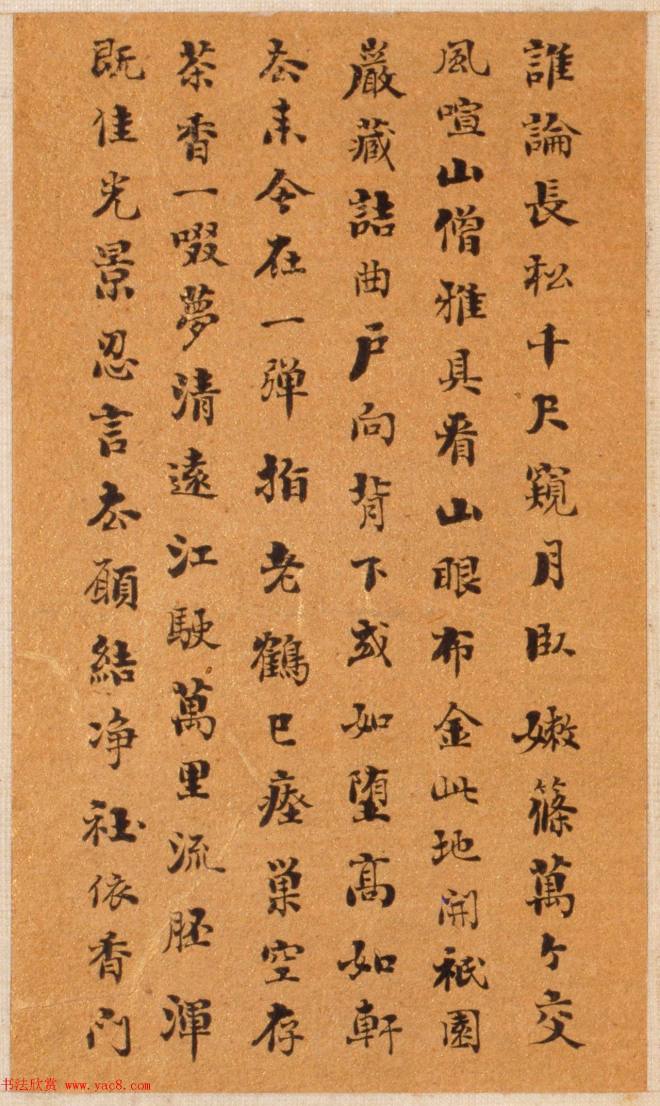 誰論長松千尺窺月臥嫩篠萬个交
風喧山僧雅具看山眼布金此地開祇園
巖藏詰曲戶向背下或如墮高如軒
去來今在一彈指老鶴已瘞巢空存
茶香一啜夢清遠江駛萬里流胚渾
既佳光景忍言去願結净社依香門
书法欣赏 www.yac8.com